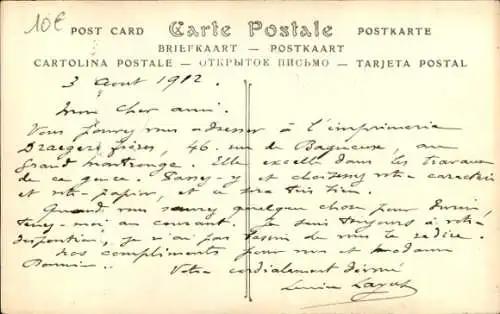 10€
POST CARD Carte Postale POSTKARTE
BRIEFKAART — POSTKAART
CARTOLINA POSTALE — ОТКРЫТОЕ ПИСЬМО — TARJETA POSTAL
3 Aout 1912.
Mon cher ami.
Vous pouvez vous adresser à l'imprimerie
Draeger frères, 46. rue de Bagneux, au
grand montrouge. Elle excelle dans les travaux
de ce genre. Passez-y et choisissez votre caractère
et votre papier, et ce sera très bien.
Quand vous saurez quelque chose pour
tenez-moi au courant. Je suis toujours à votre
disposition, je n'ai pas besoin de vous le redire.
Nos compliments pour vous et madame
Votre cordialement dévoué